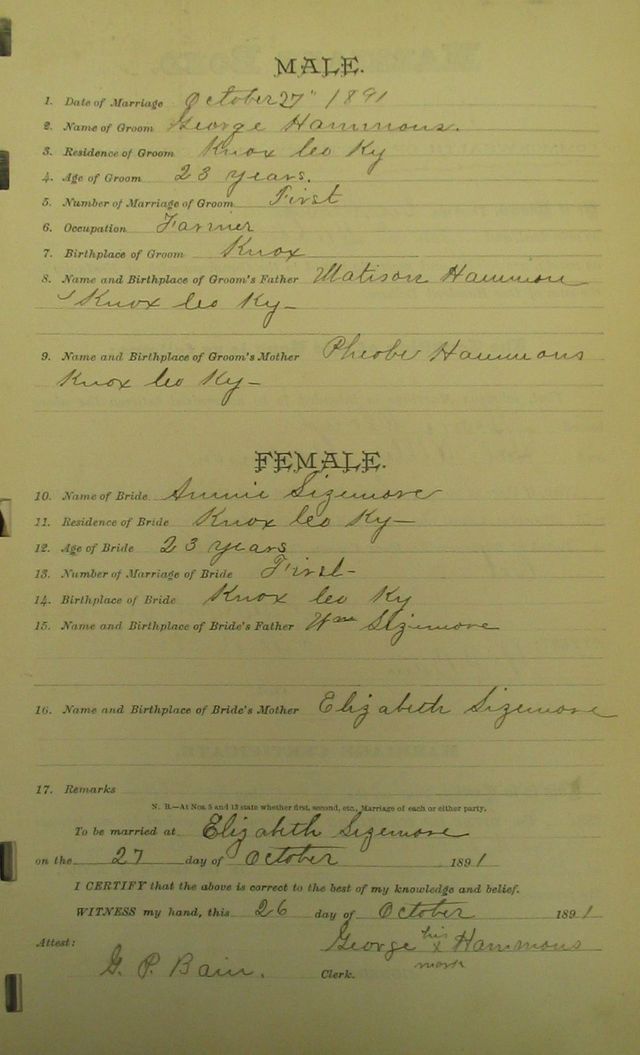 MALE.
1. Date of Marriage October 27" 1891
2. Name of Groom George Hammons.
3. Residence of Groom Knox Co Ky
4. Age of Groom 23 years.
5. Number of Marriage of Groom First
6. Occupation Farmer
7. Birthplace of Groom Knox
8. Name and Birthplace of Groom's Father Matison Hammon
s Knox Co Ky-
9. Name and Birthplace of Groom's Mother Pheobe Hammons
Knox Co Ky-
FEMALE.
10. Name of Bride Annie Sizemore
11. Residence of Bride Knox Co Ky-
12. Age of Bride 23 years
13. Number of Marriage of Bride First-
14. Birthplace of Bride Knox Co Ky
15. Name and Birthplace of Bride's Father Wm Sizemore
16. Name and Birthplace of Bride's Mother Elizabeth Sizemore
17. Remarks
N. B.—At Nos. 5 and 13 state whether first, second, etc., Marriage of each or either party.
To be married at Elizabeth Sizemore
on the 27 day of October 1891
I CERTIFY that the above is correct to the best of my knowledge and belief.
WITNESS my hand, this 26 day of October 1891
Attest: George his x mark Hammons
G. P. Bain. Clerk.